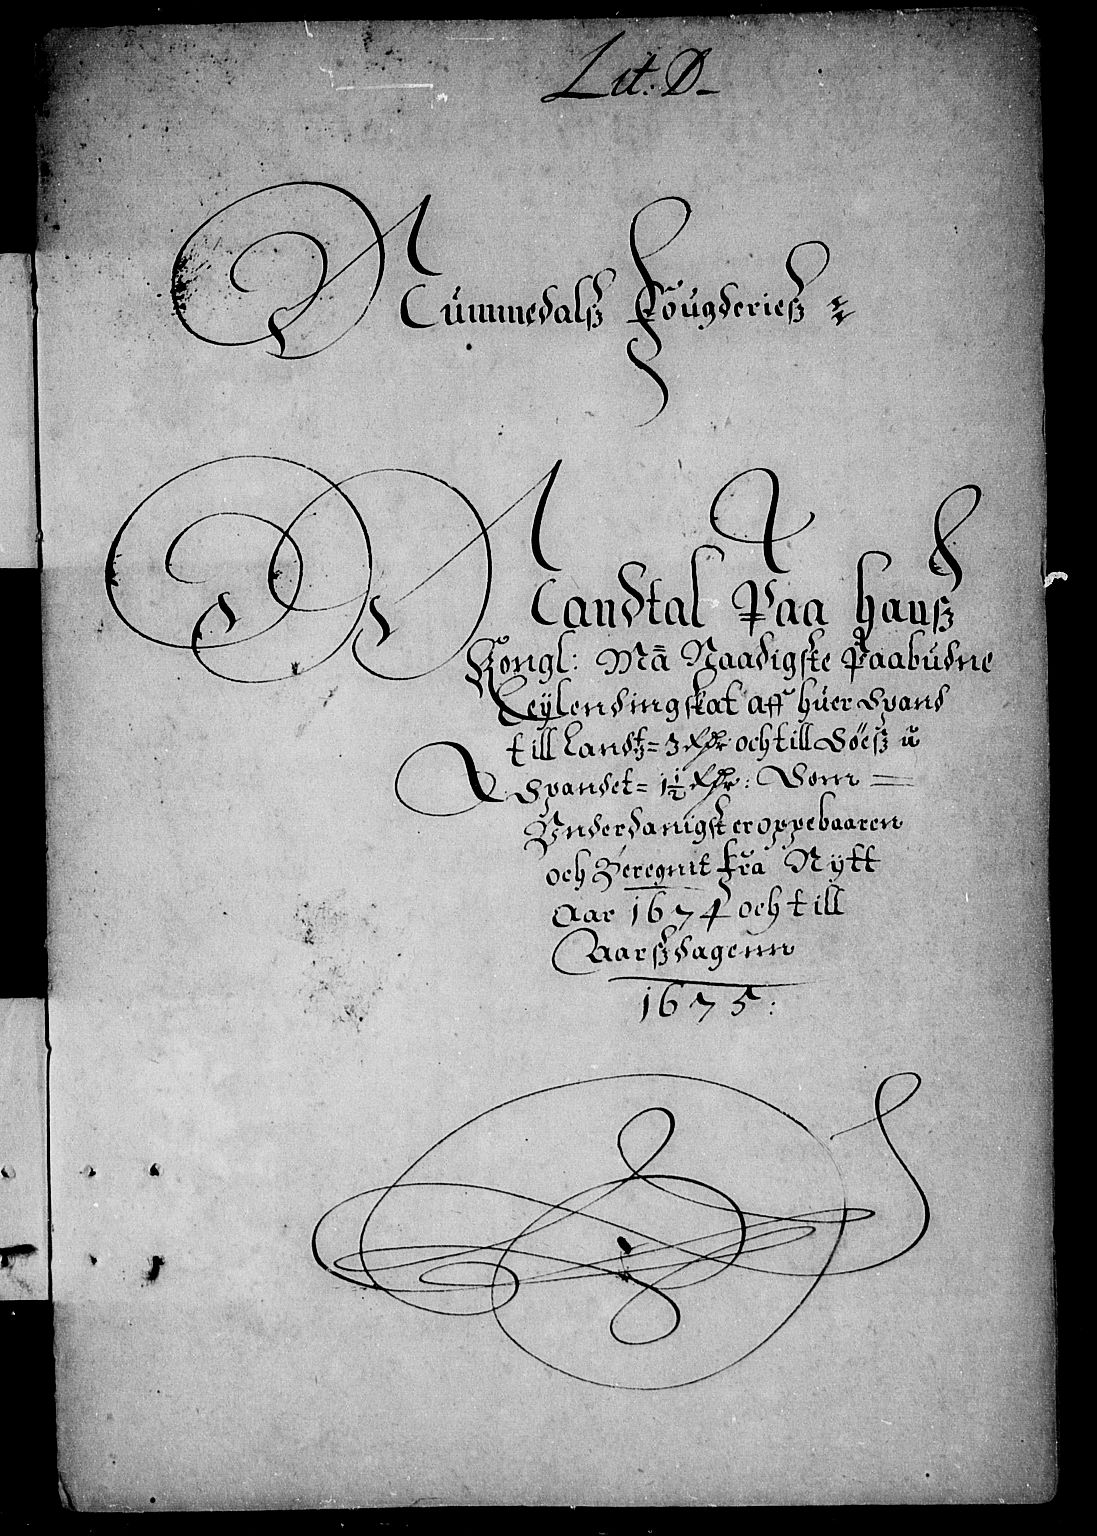 Lit: D
Nummedalß Fougderieß
Mandtal Paa hanß
Kongl: Mā Naadigste Paabudne
Leÿlendingskat aff huer Spand
till Landtz= 3 Rdr och till Söeß u
Spandet= 1½ Rdr: Som
Vnderdanigst er oppebaaren
och Beregnit fra Nytt
Aar 1674 och till
Aarßdagenn
1675: